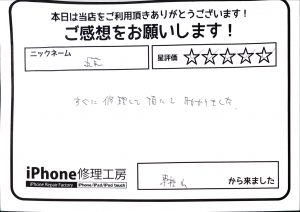 本日は当店をご利用頂きありがとうございます！
ご感想をお願いします！
ニックネーム
星評価 ☆☆☆☆☆
すぐに修理して頂いて助かりました。
iPhone修理工房
iPhone Repair Factory iPhone/iPad/iPod touch
から来ました